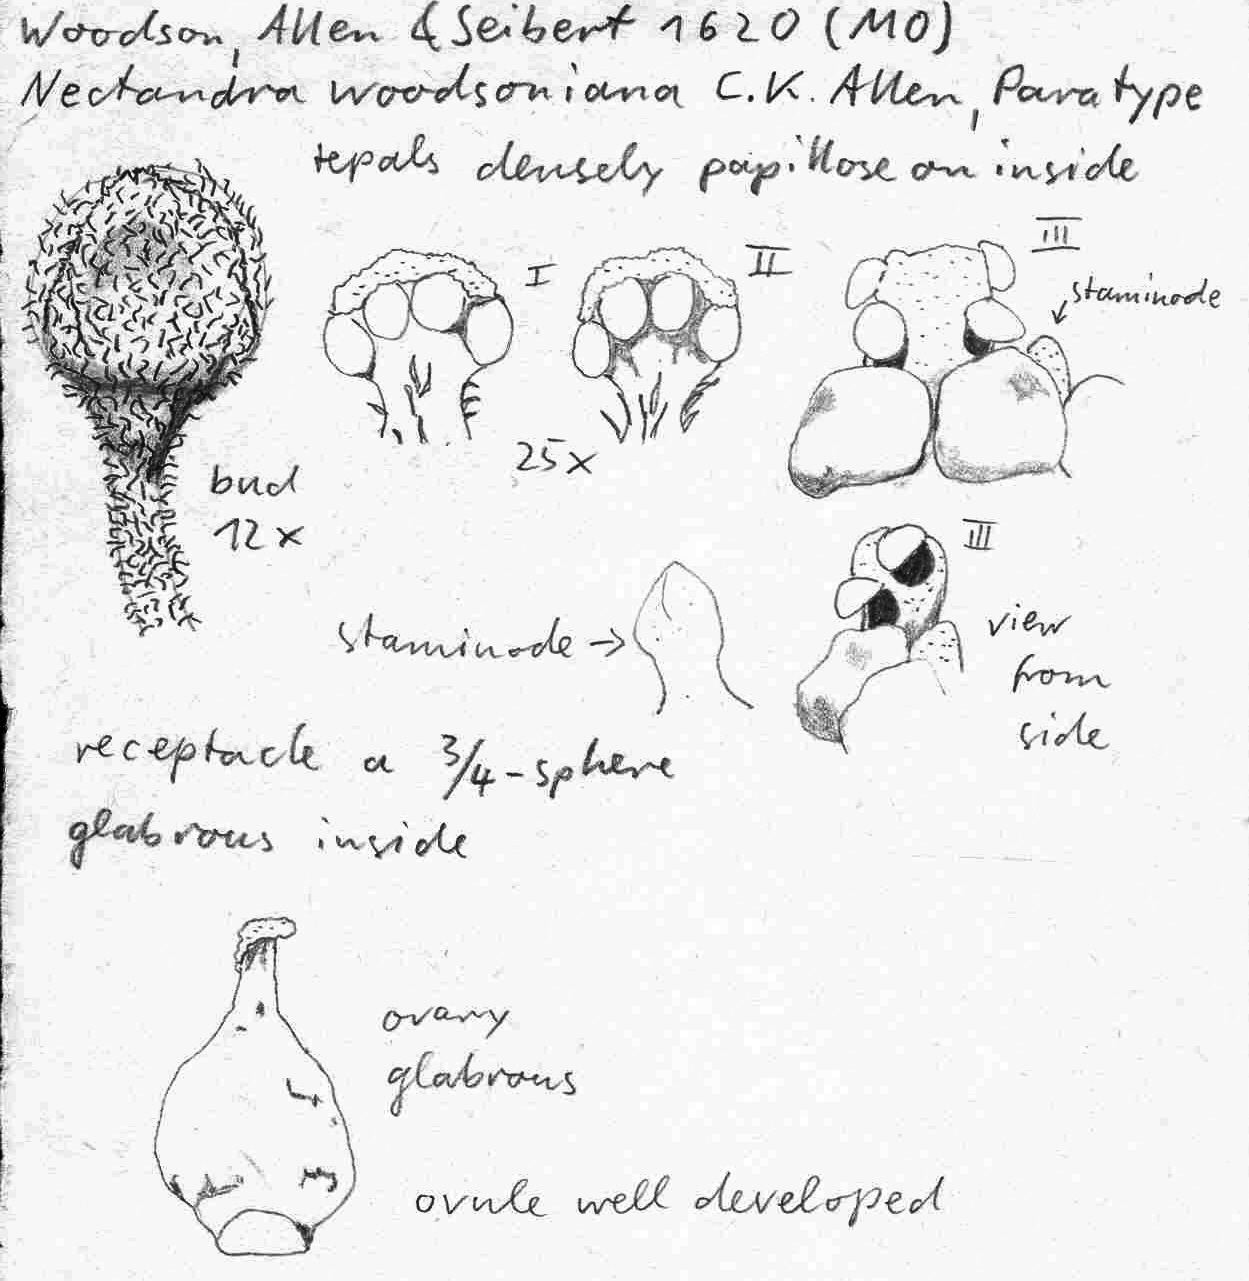 Woodson, Allen & Seibert 1620 (MO)
Nectandra woodsoniana C.K. Allen, Paratype
tepals densely papillose on inside
I
II
III
staminode
25x
bud
12x
III
staminode →
view
from
side
receptacle a 3/4-sphere
glabrous inside
ovary
glabrous
ovule well developed